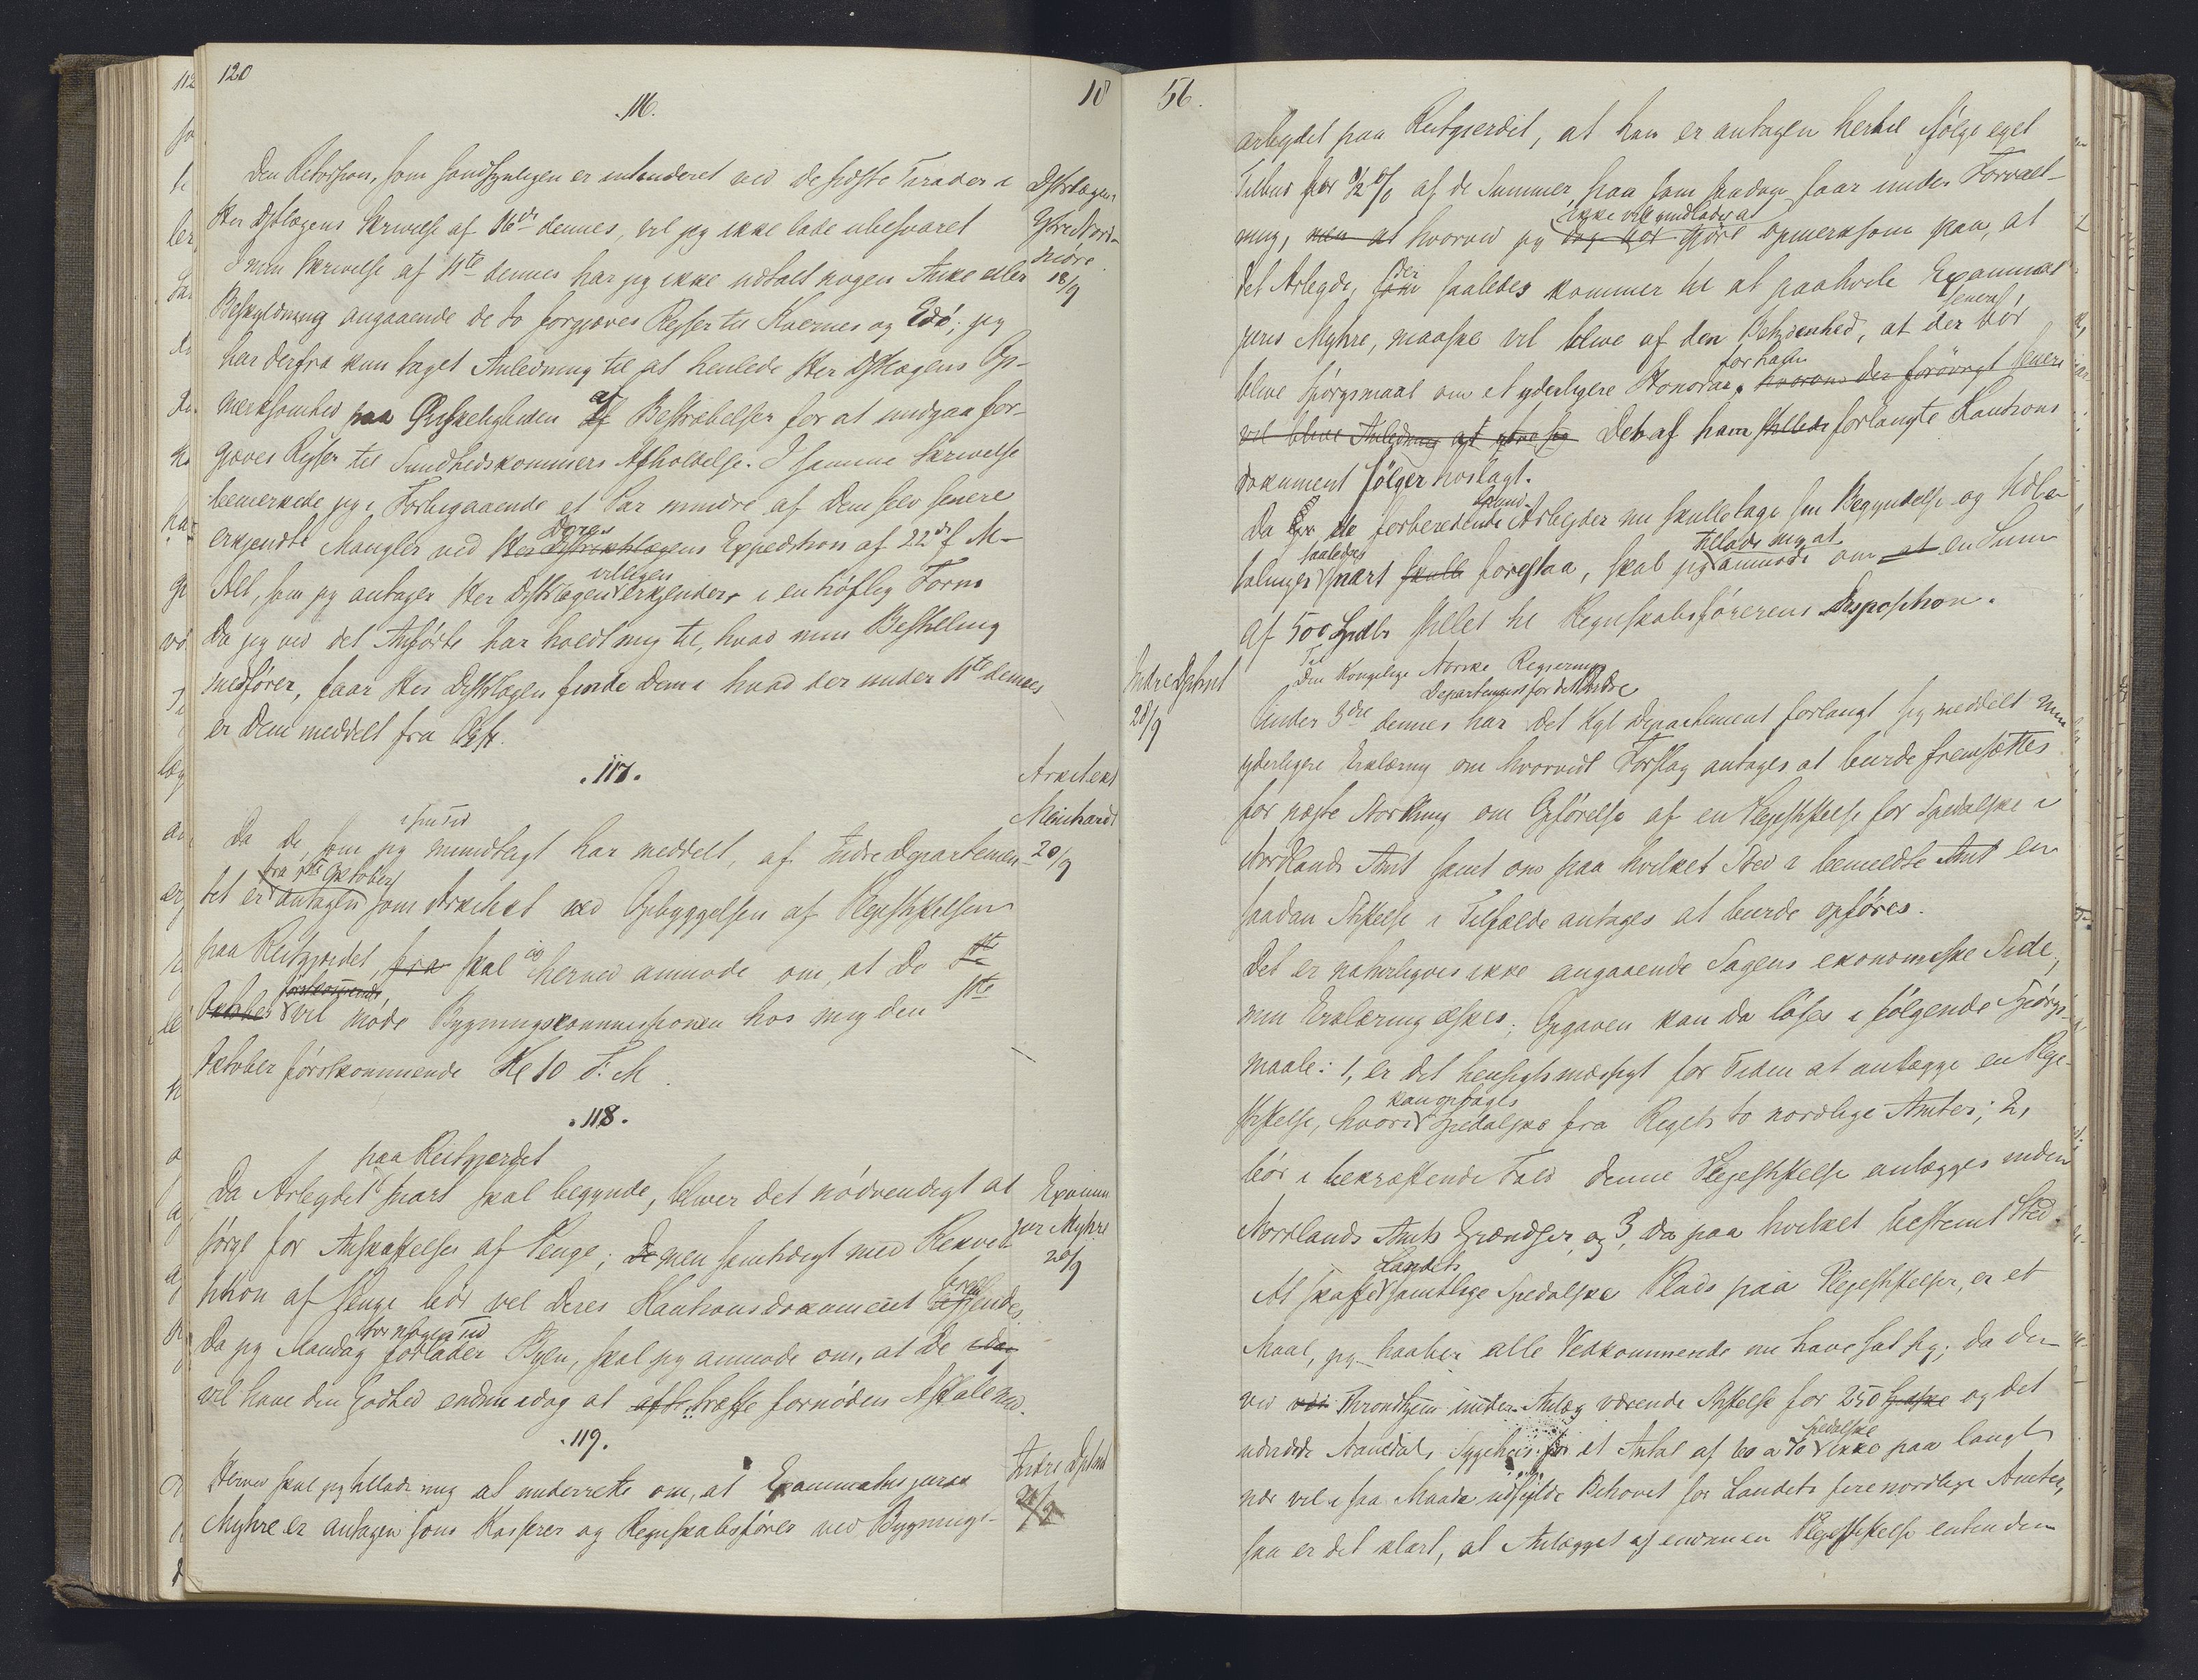 120
18
.116.
Den Retorsion, som sandsynligen er intenderet ved de sidste Tirader i
Hr Dstrlægens Skrivelse af 16de dennes, vil jeg ikke lade ubesvaret
I min Skrivelse af 11te dennes har jeg ikke udtalt nogen Anke eller
Beskyldning angaaende de to forgjæves Rejser til Kvernes og Edö; jeg
har derfra kun taget Anledning til at henlede Hr Dstrlægens Op-
mærksomhed paa Ønskeligheden af Bestræbelser for at undgaa for-
gjæves Rejser til Sundhedskommiss Afholdelse. I samme Skrivelse
bemærkede jeg i Forbigaaende et Par mindre af Dem selv senere
erkjendte Mangler ved Deres Expedition af 22de f. M-
Alt, som jeg antager Hr Dstrlægen villigen erkjender, i en höflig Form
Da jeg ved det Anførte har holdt mig til, hvad min Bestilling
medfører, faar Hr Dstrlægen finde Dem i hvad der under 11te dennes
er Dem meddelt fra
Dstrlægen
Ytre Nord-
möre
18/9
.117.
Arkitekt
Meinhardt
20/9
Da De, som jeg i sin Tid mundtligt har meddelt, af Indredepartemen-
tet er fra 1ste Oktober antagen som Arkitekt ved Opbyggelsen af Plejestiftelsen
paa Reitgjerdet, fra skal jeg herved anmode om, at De 1ste
Oktober förstkommende, vil möde Bygningskommissionen hos mig den 1ste
Oktober förstkommende Kl 10 F. M.
.118.
Da Arbejdet paa Reitgjerdet snart skal begynde, bliver det nödvendigt at
sörge for Anskaffelse af Penge; De men samtidigt med Rekvisi-
sition af Penge bör vel Deres Kautionsdokument
Da jeg Mandag for nogen Tid forlader Byen, skal jeg anmode om, at De idag
vil have den Godhed endnu idag at træffe fornöden Aftale med.
Examin
jur Myhre
20/9
.119.
Indre Dptmt
Herved skal jeg tillade mig at underrette om, at Examinatus juris
Myhre er antagen som Kasserer og Regnskabsförer ved Bygnings-
56.
arbejdet paa Reitgjerdet, at han er antagen hertil ifölge eget
Tilbud for 1/2 % af de Summer, han som saadan faar under Forvalt-
ning, men at hvorved jeg ikke vil undlade at gjöre opmerksom paa, at
det Arbejde, der saaledes kommer til at paahvile Examinat
juris Myhre, maaske vil blive af den Beskaffenhed, at der senere bör
blive Spörgsmaal om et yderligere Honorar. hvorom der forövrigt senere
vil blive Anledning at ytre sig Det af ham forlangte Kautions
dokument fölger hoslagt.
Da de forberedende Arbejder nu skulle tage sin Begyndelse og Udbe-
talinger saaledes snart skulle forestaa, skal jeg tillade mig at anmode om at en Sum
af 500 Spdlr stillet til Regnskabsførerens Disposition.
Indre Dptmt
20/9
Til
Den Kongelige Norske Regjerings
Departement for det Indre
Under 3die dennes har det Kgl Departement forlangt sig meddelt min
yderligere Erklæring om hvorvidt Forslag antages at burde fremsættes
for næste Storthing om Opförelse af en Plejestiftelse for Spedalske i
Nordlands Amt samt om paa hvilket Sted i bemeldte Amt en
saadan Stiftelse i Tilfælde antages at burde opföres.
Det er naturligvis ikke angaaende Sagens ekonomiske Side,
min Erklæring æskes; Opgaven kan da löses i fölgende Spörgs-
maale: 1, er det hensigtsmæssigt for Tiden at anlægge en Pleje-
stiftelse, hvori kan optages Spedalske fra Rigets to nordlige Amter; 2,
bör i bekræftende Fald denne Plejestiftelse anlægges inden
Nordlands Amts Grændser, og 3, da paa hvilket bestemt Sted.
At skaffe Landets samtlige Spedalske Plads paa Plejestiftelser, er et
Maal, jeg haaber alle Vedkommende nu have sat sig; da den
ved Throndhjem under Anlæg værende Stiftelse for 250 og det
udvidede Namdals Sygehus for et Antal af 60 a 70 Spedalske ikke paa langt
nær vil i saa Maade udfylde Behovet for Landets fire nordlige Amter,
saa er det klart, at Anlægget af endnu en Plejestiftelse enten den